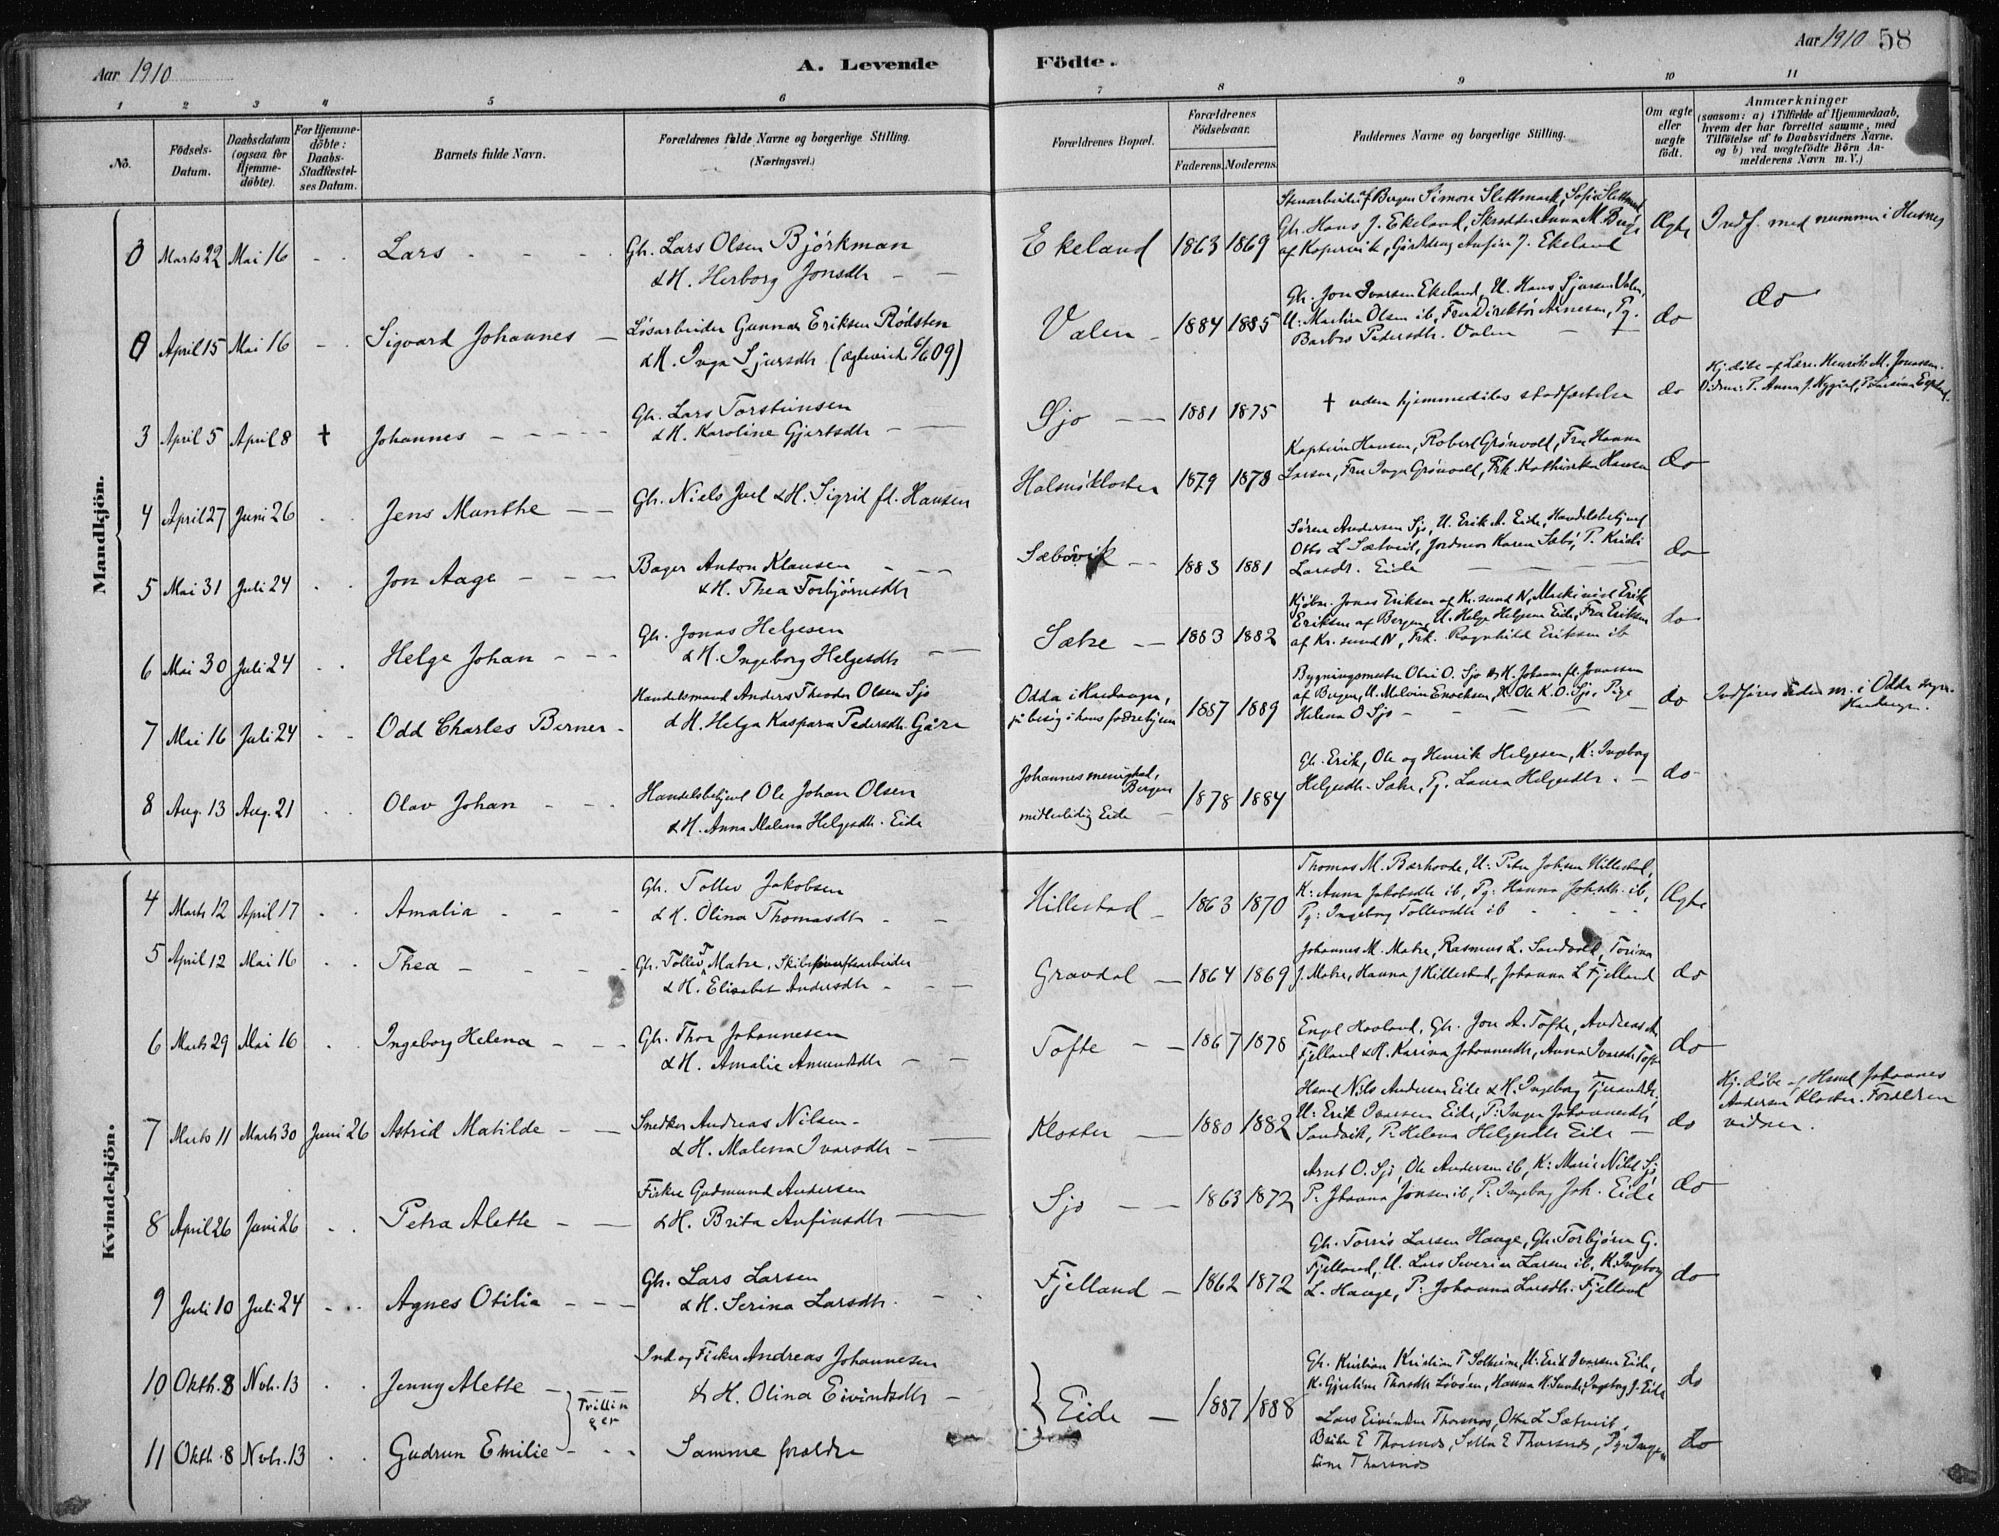 Aar 1910
A. Levende
Födte.
Aar 1910 58
1 2 3 4 5 6 7 8 9 10 11
Nö.
Födsels-
Datum.
Daabsdatum
(ogsaa for
Hjemme-
döbte).
For Hjemme-
döbte:
Daabs-
Stadfæstel-
ses Datum.
Barnets fulde Navn.
Forældrenes fulde Navne og borgerlige Stilling.
(Næringsvei.)
Forældrenes Bopæl.
Forældrenes
Födselsaar.
Faderens. Moderens.
Faddernes Navne og borgerlige Stilling.
Om ægte
eller
uægte
födt.
Anmærkninger
(saasom: a) i Tilfælde af Hjemmedaab,
hvem der har forrettet samme, med
Tilföielse af to Daabsvidners Navne,
og b) ved uægtefödte Börn An-
melderens Navn m. V.)
Mandkjön.
0 Marts 22 Mai 16 Lars
Gh. Lars Olsen Björkman
& H. Herborg Jonsdtr
Ekeland 1863 1869
Gh. Hans J. Ekeland, Anna M.
af Kopervik, Anfin J. Ekeland
Ægte Indf. med nummer i Husnes
0 April 15 Mai 16 Sigvard Johannes
Løsarbeider Gunnar Eriksen Rödsten
& H. Inga Sjursdtr (Ægteviede 6/6 09)
Valen 1884 1885
Gh. Jon Ivarsen Ekeland, U. Hans Sjursen Valen,
U: Martin Olsen ib, Fru Direktör Arnesen, Pg.
Barbro Pedersdtr. Valen
do do
3 April 5 April 8 † Johannes
Gh. Lars Torsteinsen
& H. Karoline Gjertsdtr
Sjo 1881 1875
† uden hjemmedåbs stadfæstelse
do
Hj. döbt af Lærer Henrik M. Jonassen.
Vidner: P. Anna J.
4 April 27 Juni 26 Jens Munthe
Gh. Niels Juel & H. Sigrid fd. Hansen
Halsnökloster 1879 1878
Kaptein Hansen, Robert Grönvold, Fru Hanna
Larsen, Fru Inga Grönvold, Frk. Kathinka Hansen
do
5 Mai 31 Juli 24 Jon Aage
Bager Anton Klausen
& H. Thea Torbjörnsdtr
Sæbövik 1883 1881
Sören Andersen Sjo, U. Erik A. Eide, Handelsbetjent
Otto L Sætveit, Jordmor Karen Sæbö, P. Kristi
Larsdtr. Eide
do
6 Mai 30 Juli 24 Helge Johan
Gh. Jonas Helgesen
& H. Ingeborg Helgesdtr
Sætre 1883 1882
Kjöbm. Jonas Eriksen af Kr.sund N, Maskinist Erik
Eriksen af Bergen, U. Helge Helgesen Eide, Fru Eriksen
af Kr. sund N, Frk. Ragnhild Eriksen ib
do
7 Mai 16 Juli 24 Odd Charles Berner
Handelsmand Anders Theodor Olsen Sjo
& H. Helga Kaspara Pedersdtr. Gåre
Odda i Hardanger,
på besög i hans fædrehjem
1887 1889
Bygningsmester Olai O. Sjo & H. Johanna fd. Jonassen
af Bergen, U. Melvin Enoksen, Ole K. O. Sjo, Pige
Helena O Sjo
do
Indföres uden nr. i Odda
Hardanger.
8 Aug. 13 Aug. 21 Olav Johan
Handelsbetjent Ole Johan Olsen
& H. Anna Malena Helgesdtr. Eide
Johannes menighed,
Bergen
midlertidig Eide
1878 1884
Gh. Erik, Ole og Henrik Helgesen, K: Ingeborg
Helgesdtr. Sætre, Pg. Laura Helgesdtr.
do
Kvindekjön.
4 Marts 12 April 17 Amalia
Gh. Tollev Jakobsen
& H. Olina Thomasdtr
Hillestad 1863 1870
Thomas M. Bærhovde, U: Peter Johsen Hillestad,
K: Anna Jakobsdtr ib, Pg: Hanna Johsdtr. ib,
Pg: Ingeborg Tollevsdtr ib
Ægte
5 April 12 Mai 16 Thea
Gh. Tollev T. Matre, Skibsværftsarbeider
& H. Elisabet Andersdtr
Gravdal 1864 1869
Johannes M. Matre, Rasmus L. Sandvold, Torina
J. Matre, Hanna J Hillestad, Johanna L Fjelland
do
6 Marts 29 Mai 16 Ingeborg Helena
Gh. Thor Johannesen
& H. Amalie Amundsdtr
Tofte 1867 1878
Engel Haaland, Gh. Jon A. Tofte, Andreas A.
Fjelland & H. Karina Johannesdtr, Anna Ivarsdtr Tofte
do
7 Marts 11 Marts 30 Juni 26 Astrid Matilde
Snedker Andreas Nilsen
& H. Malena Ivarsdtr
Kloster 1880 1882
Hsmd Nils Andersen Eide & H. Ingeborg
U: Erik Ivarsen Eide, P: Inga Johannesdtr
Sandvik, P: Helena Helgesdtr Eide
do
Hj. döbt af Hsmd Johannes
Andersen Kloster. Foræeldren
vidner.
8 April 26 Juni 26 Petra Alette
Fisker Gudmund Andersen
& H. Brita Anfinsdtr
Sjo 1863 1872
Arnt O. Sjo, Ole Andersen ib, K: Marie Nilsd Sjo
P: Johanna Jonsen ib, P: Ingeborg Joh. Eide
do
9 Juli 10 Juli 24 Agnes Otilia
Gh. Lars Larsen
& H. Serina Larsdtr.
Fjelland 1862 1872
Gh. Torris Larsen Hauge, Gh. Torbjörn G.
Fjelland, U. Lars Severin Larsen ib, K. Ingeborg
L. Hauge, P: Johanna Larsdtr. Fjelland
do
10 Oktb. 8 Nvb. 13 Jenny Alette
Trillin
ger
Ind og Fisker Andreas Johannesen
& H. Olina Eivindsdtr
Eide 1887 1888
Gh. Kristian T Solheim, U: Erik Ivarsen Eide,
K. Gjertine Thorsdtr Lövöen, Hanna H. Sunde, Ingeborg J. Eide
do
11 Oktb. 8 Nvb. 13 Gudrun Emilie
Samme forældre
Lars Eivindsen Thorsnes, Otto L Sætveit,
Brita E Thorsnes, Sella E Thorsnes, Pg: Inga
Thorsnes
do